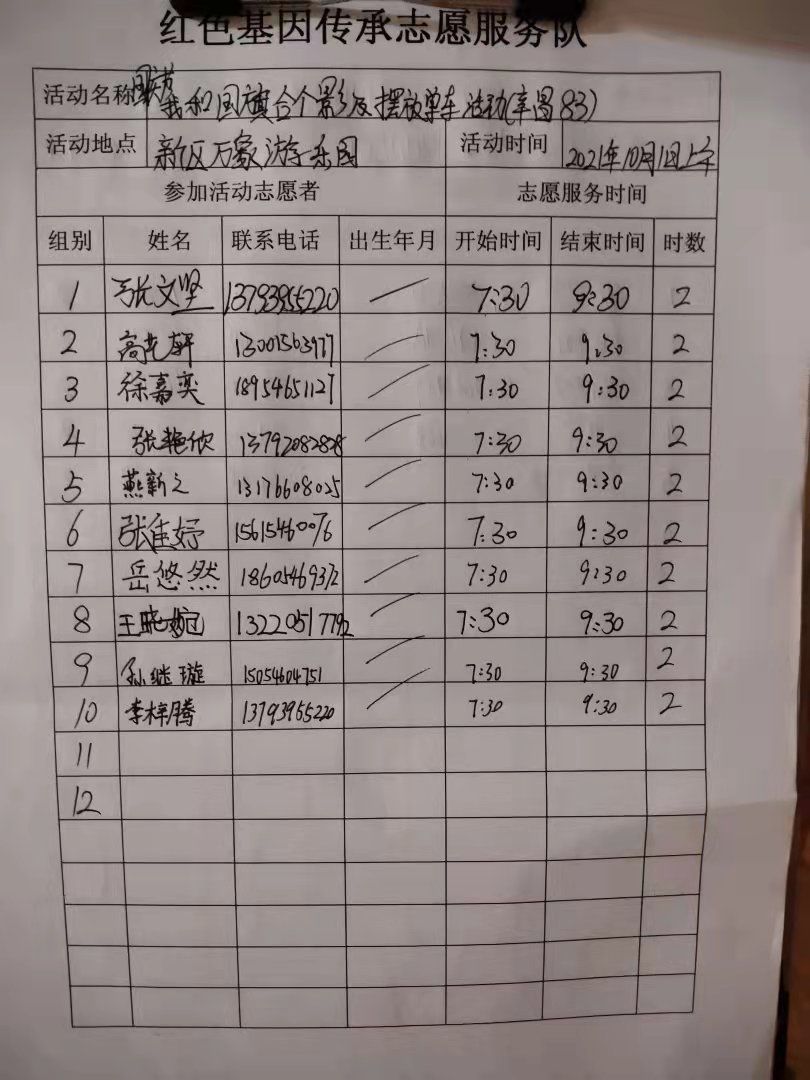 红色基因传承志愿服务队
活动名称 国庆节我和国旗合个影及摆放单车活动(辛昌83)
活动地点 新区万象游乐园 活动时间 2021年10月1日上午
参加活动志愿者 志愿服务时间
组别 姓名 联系电话 出生年月 开始时间 结束时间 时数
1 张文坚 13793955220 7:30 9:30 2
2 高艺轩 7:30 9:30 2
3 徐嘉奕 18954651127 7:30 9:30 2
4 张艳欣 13792082828 7:30 9:30 2
5 燕新之 13176608025 7:30 9:30 2
6 张佳妤 15615460076 7:30 9:30 2
7 岳悠然 18605469372 7:30 9:30 2
8 王晓 13220517792 7:30 9:30 2
9 孙继璇 15054604751 7:30 9:30 2
10 李梓腾 13793955220 7:30 9:30 2
11
12